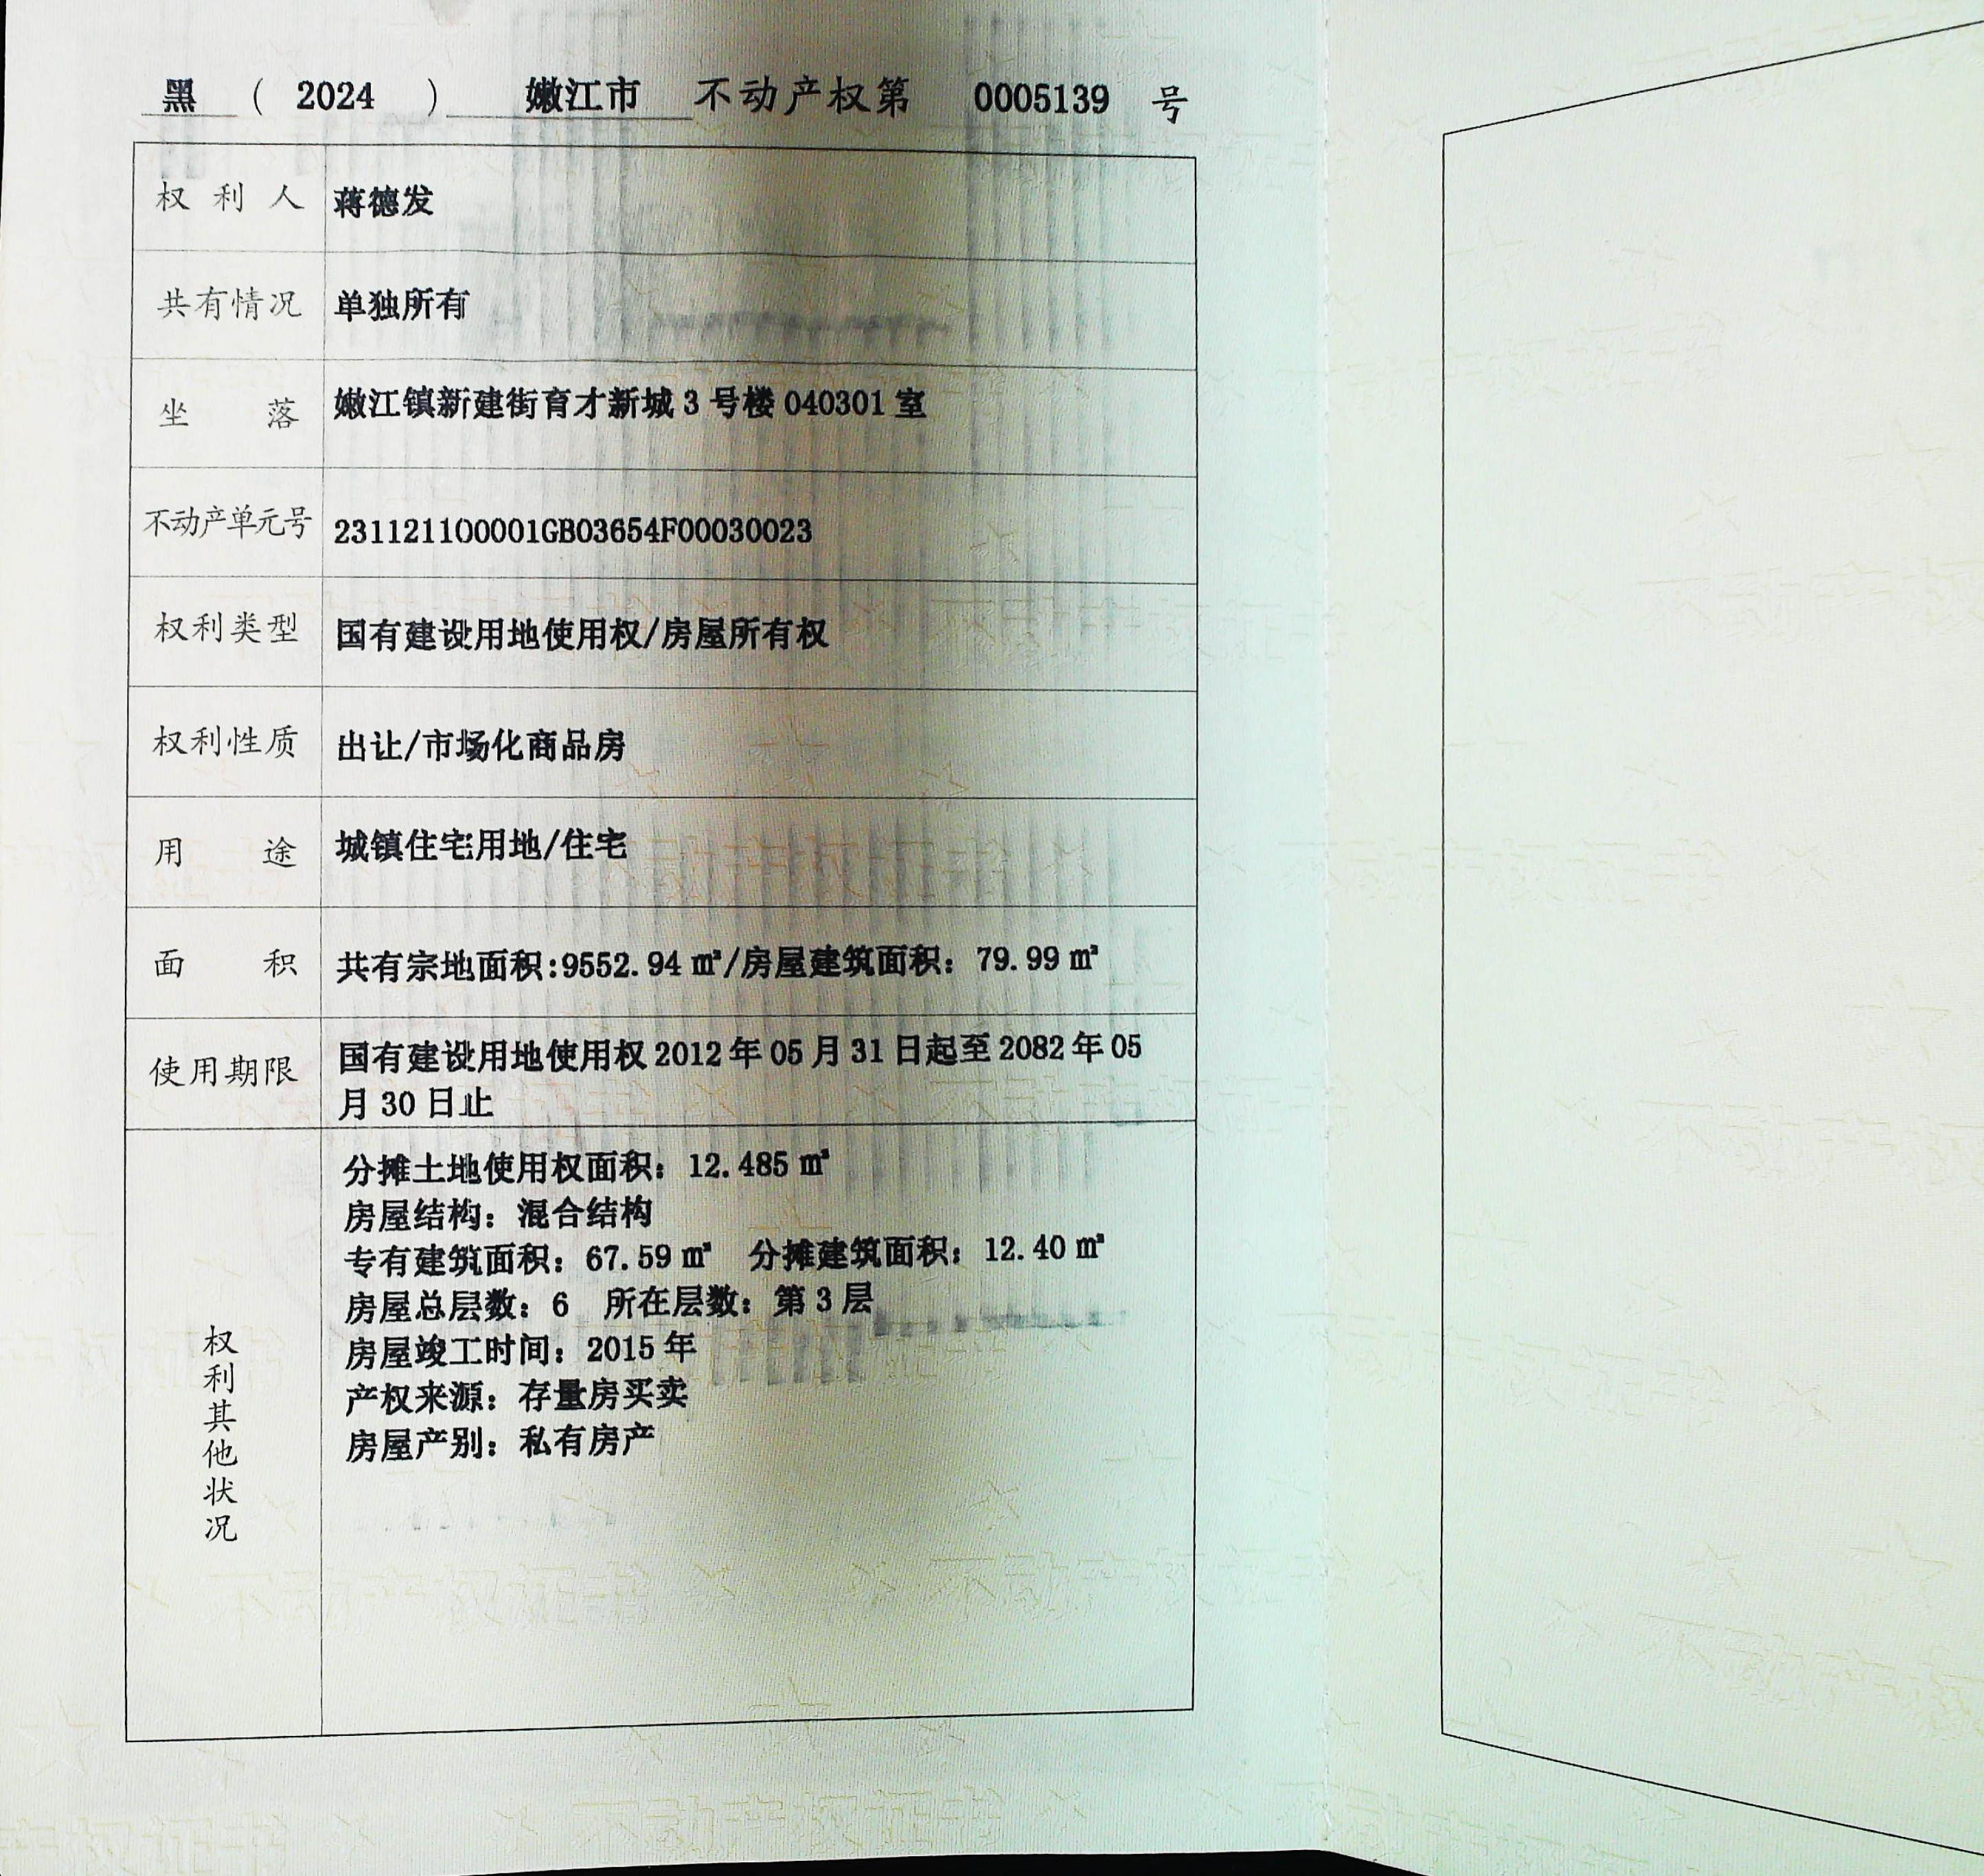 黑（2024）嫩江市 不动产权第 0005139 号
权利人 蒋德发
共有情况 单独所有
坐落 嫩江镇新建街育才新城 3 号楼 040301 室
不动产单元号 231121100001GB03654F00030023
权利类型 国有建设用地使用权/房屋所有权
权利性质 出让/市场化商品房
用途 城镇住宅用地/住宅
面积 共有宗地面积:9552.94 ㎡/房屋建筑面积：79.99 ㎡
使用期限 国有建设用地使用权 2012 年 05 月 31 日起至 2082 年 05
月 30 日止
权利其他状况
分摊土地使用权面积：12.485 ㎡
房屋结构：混合结构
专有建筑面积：67.59 ㎡ 分摊建筑面积：12.40 ㎡
房屋总层数：6 所在层数：第 3 层
房屋竣工时间：2015 年
产权来源：存量房买卖
房屋产别：私有房产